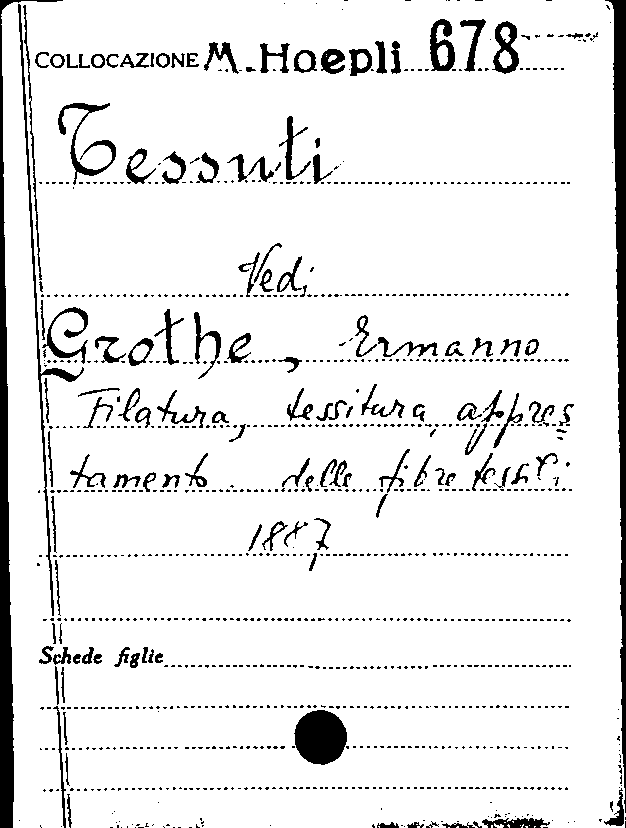 COLLOCAZIONE M. Hoepli 678
Tessuti
Vedi
Grothe, Ermanno
Filatura, tessitura, appres=
tamento. delle fibre tessili
1887
Schede figlie